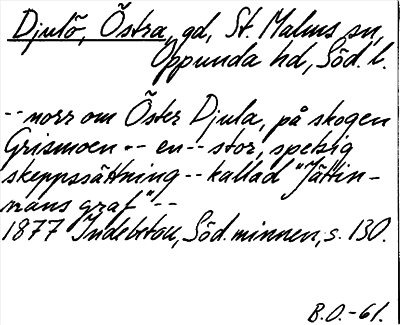 Djulö, Östra, gd, St. Malms sn,
Oppunda hd, Söd. l.
-- norr om Öster Djula, på skogen
Grismoen -- en -- stor, spetsig
skeppssättning -- kallad "Jättin-
nans graf" --
1877 Indebetou, Söd. minnen, s. 130.
B.O.-61.